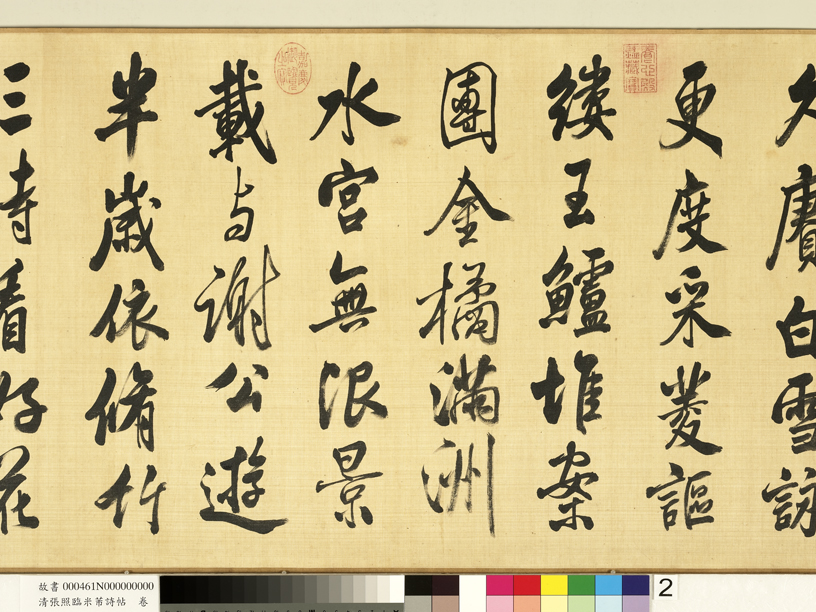 久賡白雪詠
更度采菱謳
縷玉鱸堆案
團金橘滿洲
水宮無限景
載与謝公遊
半歲依脩竹
三時看好花
故書 000461N000000000
清張照臨米芾詩帖 卷
2